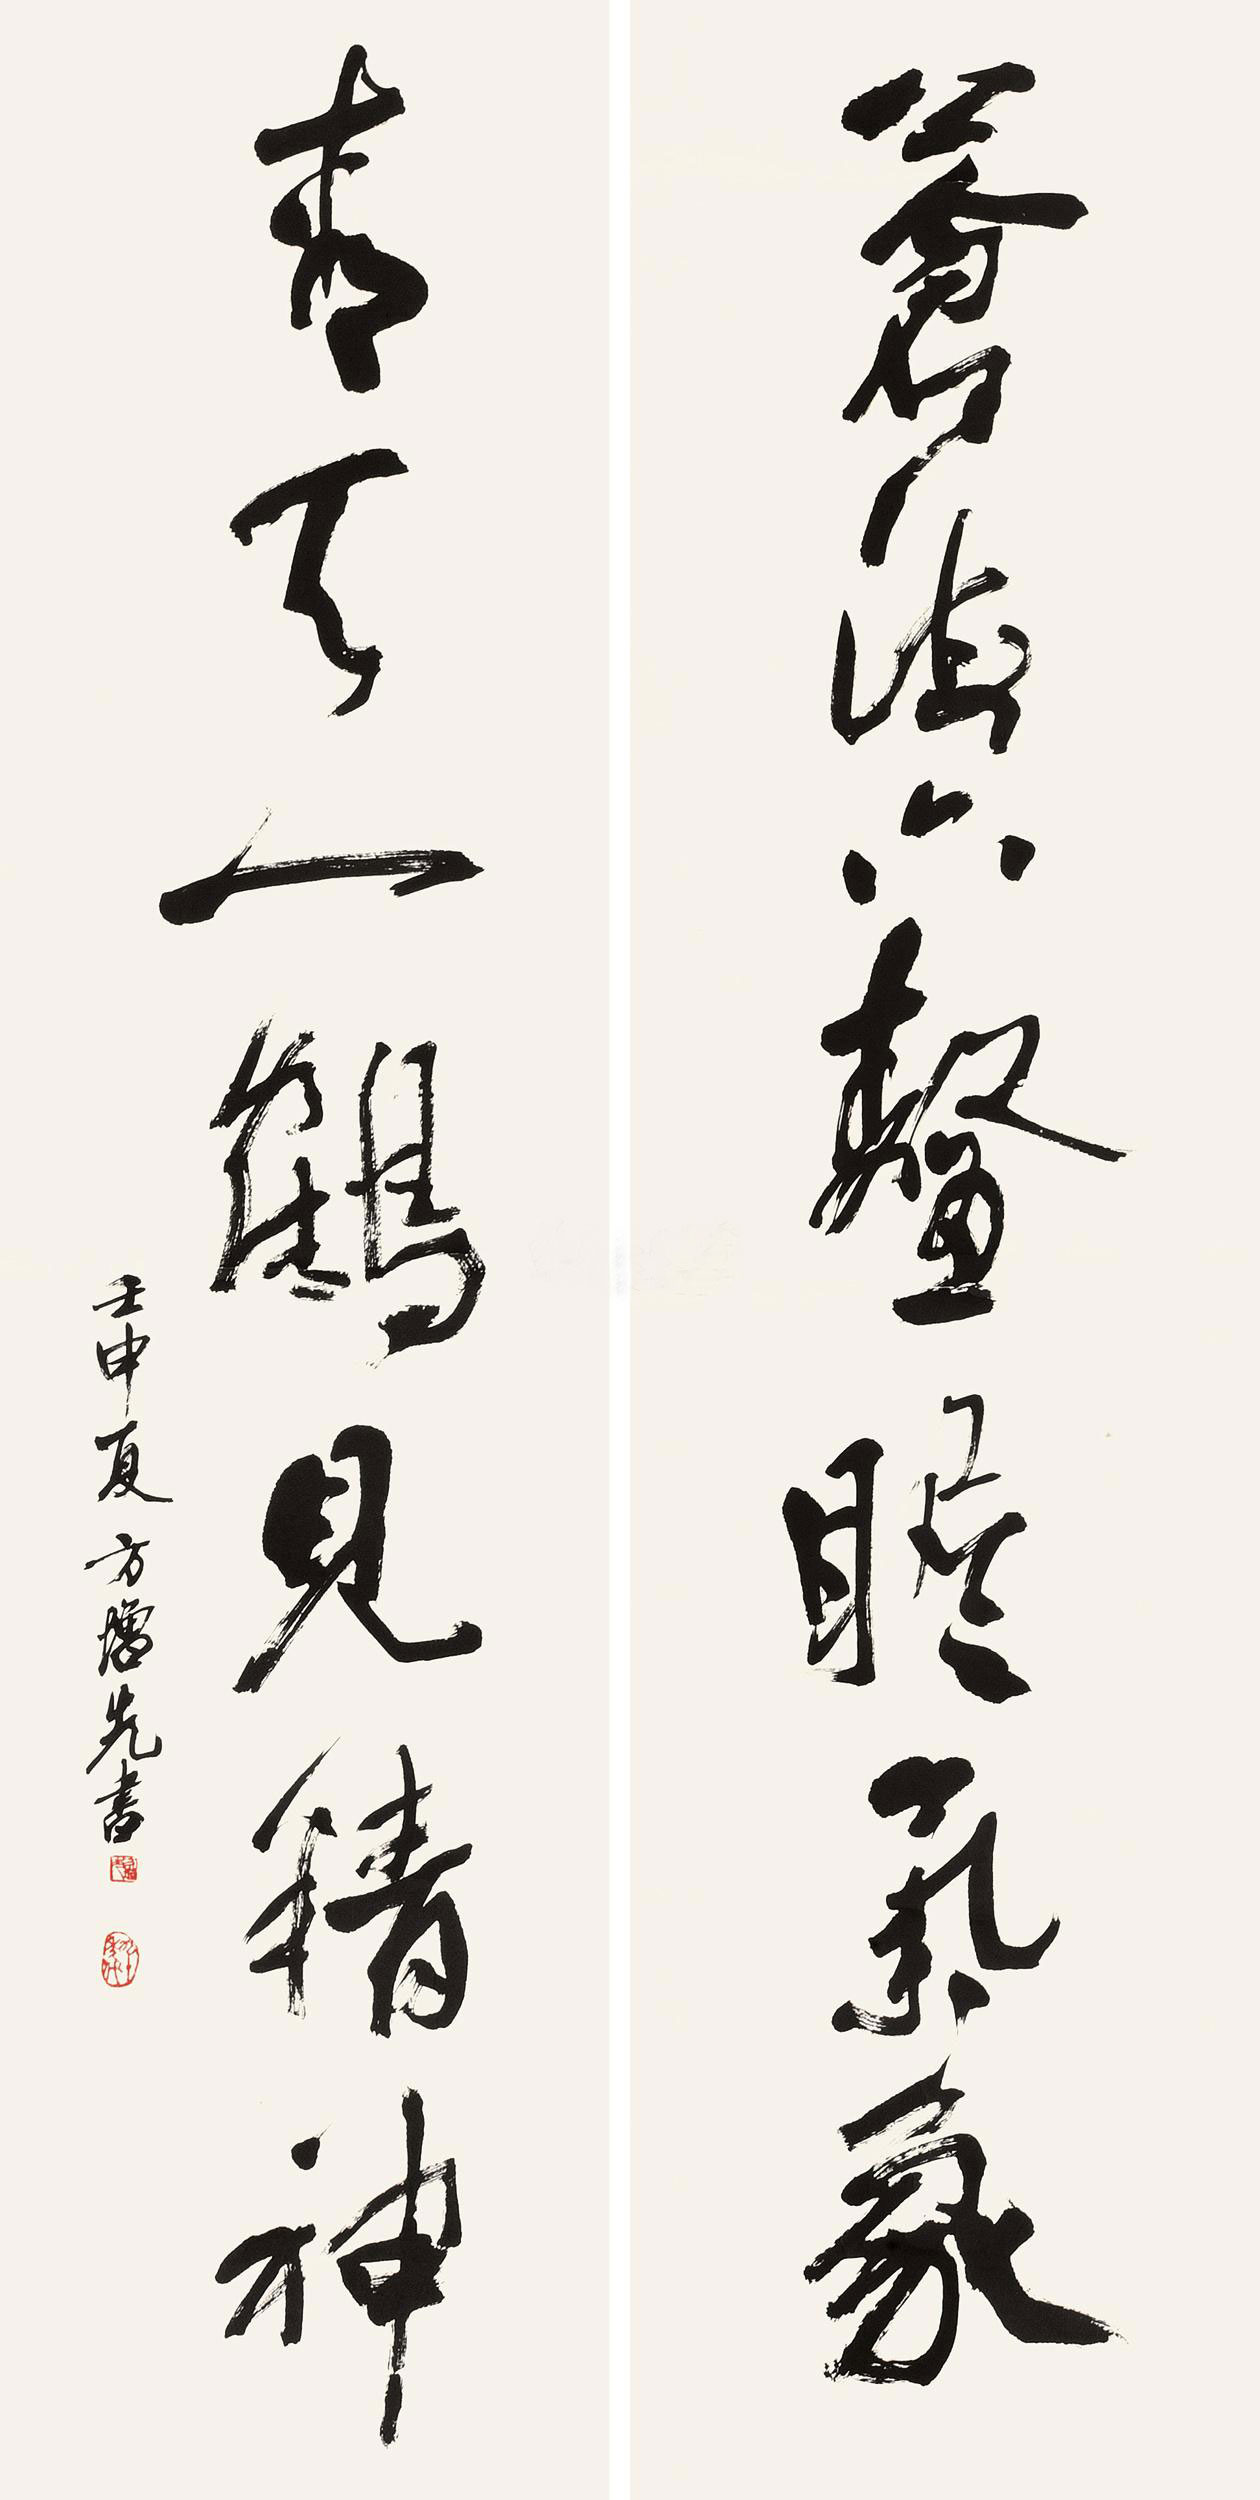 蒼海六鼇瞻氣象
青天一鶴見精神
壬申夏 方增先書